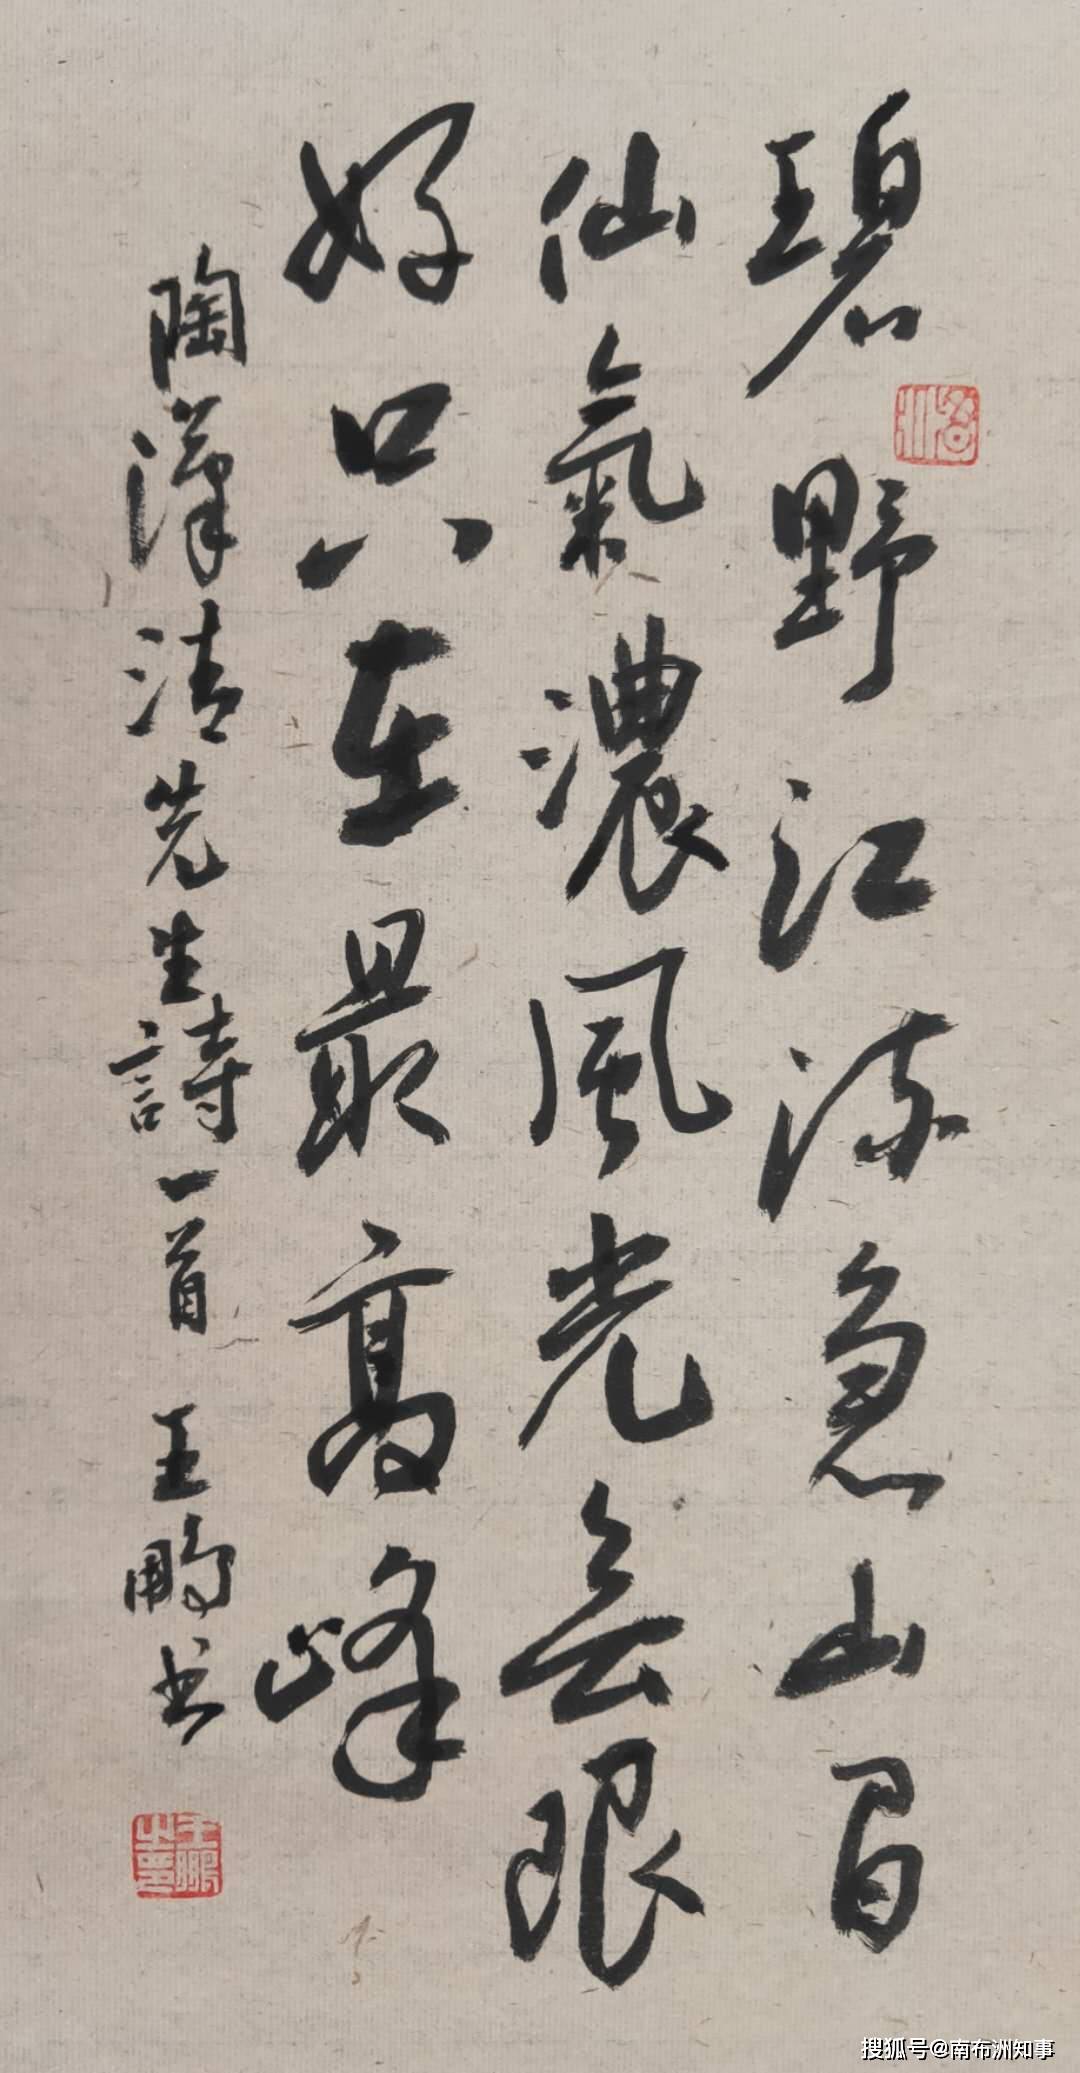 碧野江流急山間
仙氣濃風光無限
好只在最高峰
陶漢清先生詩一首 王鵬书
王鵬之印
搜狐号@南布洲知事